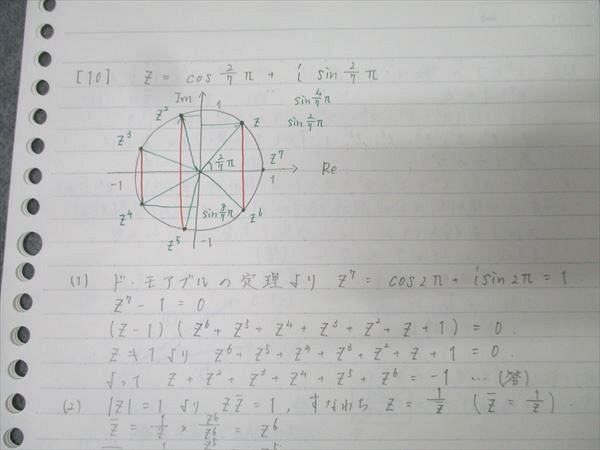 [10] z = cos 2/7 π + i sin 2/7 π
Im
1
sin 4/7 π
sin 2/7 π
z²
z
z³
2/7 π
z⁷
-1
1
Re
z⁴
sin 8/7 π
z⁶
z⁵
-1
(1) ド・モアブルの定理より z⁷ = cos2π + i sin2π = 1
z⁷ - 1 = 0
(z-1)(z⁶ + z⁵ + z⁴ + z³ + z² + z + 1) = 0.
z ≠ 1より z⁶ + z⁵ + z⁴ + z³ + z² + z + 1 = 0.
よって z + z² + z³ + z⁴ + z⁵ + z⁶ = -1 … (答)
(2) |z| = 1 より z z̄ = 1, すなわち z = 1/z̄ (z̄ = 1/z)
z̄ = 1/z × z⁶/z⁶ = z⁶